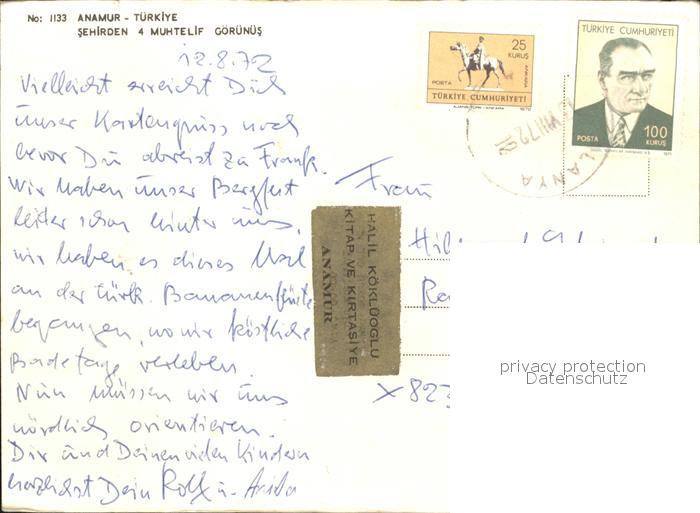 No: 1133 ANAMUR - TÜRKİYE
ŞEHİRDEN 4 MUHTELİF GÖRÜNÜŞ
12.8.72
Vielleicht erreicht Dich
unser Kartengruss noch
bevor Du abreist zu Frank.
Wir haben unser Bergfest
leider schon hinter uns,
wir haben es dieses Mal
an der türk. Bananenküste
begangen, wo wir köstliche
Badetage verleben.
Nun müssen wir uns
nördlich orientieren.
Dir und Deinen viden Kindern
herzlichst Dein Rolf u.
25
KURUŞ
ANKARA
POSTA
TÜRKİYE CUMHURİYETİ
1972
TÜRKİYE CUMHURİYETİ
POSTA
100
KURUŞ
1971
ALANYA
VIII 72
Frau
HALİL KÖKLÜOGLU
KİTAP VE KIRTASİYE
ANAMUR
x 823
privacy protection
Datenschutz